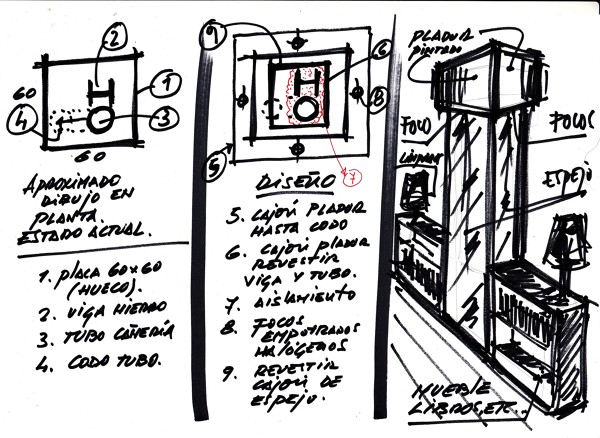 2
1
60
4
3
60
APROXIMADO
DIBUJO EN
PLANTA.
ESTADO ACTUAL.
1. PLACA 60x60
(HUECO).
2. VIGA HIERRO
3. TUBO CAÑERÍA
4. CODO TUBO.
9
6
8
5
7
DISEÑO
5. CAJÓN PLADUR
HASTA CODO
6. CAJÓN PLADUR
REVESTIR
VIGA Y TUBO.
7. AISLAMIENTO
8. FOCOS
EMPOTRADOS
HALÓGENOS
9. REVESTIR
CAJÓN DE
ESPEJO.
PLADUR
PINTADO
FOCO
FOCOS
ESPEJO
MUEBLE
LIBROS, ETC.